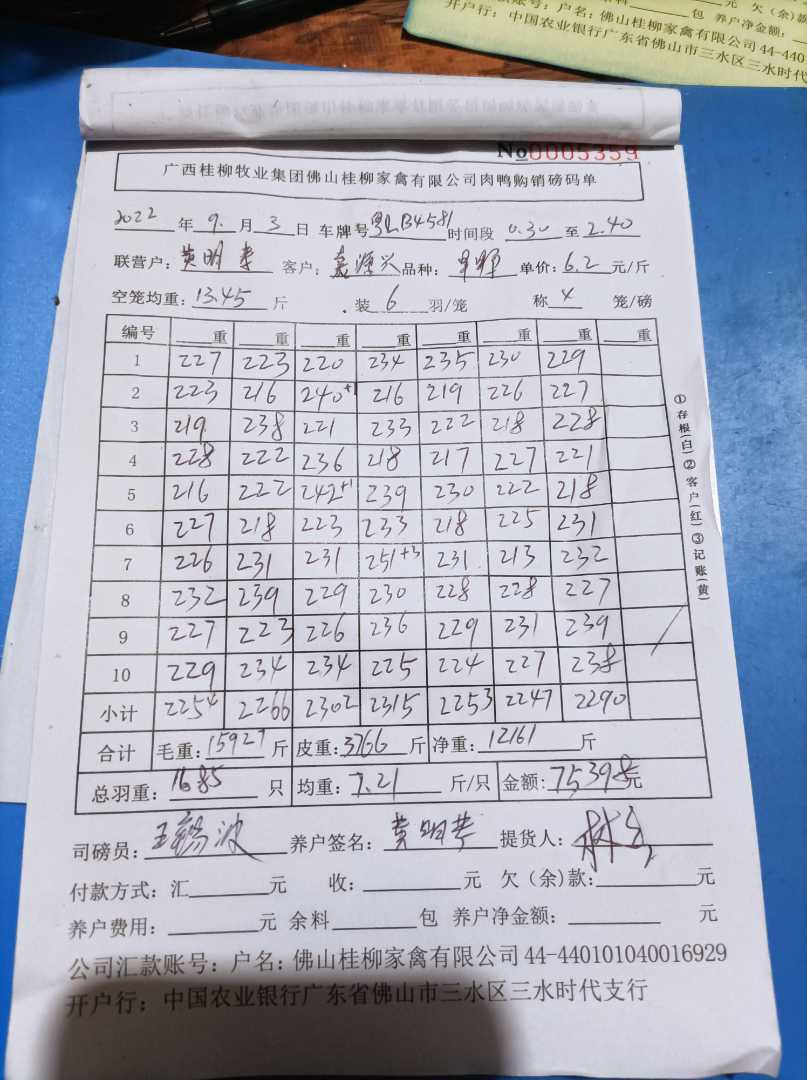 元 欠(余)
包 养户净金额:
账号:户名:佛山桂柳家禽有限公司44-440
开户行:中国农业银行广东省佛山市三水区三水时代
No 0005359
广西桂柳牧业集团佛山桂柳家禽有限公司肉鸭购销磅码单
2022 年 9. 月 3 日 车牌号 粤LB4581 时间段 0.30 至 2.40
联营户: 黄明 客户: 源兴 品种: 单价: 6.2 元/斤
空笼均重: 13.45 斤 装 6 羽/笼 称 4 笼/磅
编号 重 重 重 重 重 重 重 重
1 227 223 220 234 235 230 229
2 223 216 240+1 216 219 226 227
3 219 238 221 233 222 218 228
4 228 222 236 218 217 227 221
5 216 222 242+1 239 230 222 218
6 227 218 223 233 218 225 231
7 226 231 231 251+3 231 213 232
8 232 239 229 230 228 228 227
9 227 223 226 236 229 231 239
10 229 234 234 225 224 227 238
小计 2254 2266 2302 2315 2253 2247 2290
合计 毛重: 15927 斤 皮重: 3766 斤 净重: 12161 斤
总羽重: 1685 只 均重: 7.21 斤/只 金额: 75398元
司磅员: 王锡波 养户签名: 黄明 提货人:
付款方式:汇 元 收: 元 欠(余)款: 元
养户费用: 元 余料 包 养户净金额: 元
公司汇款账号:户名:佛山桂柳家禽有限公司44-440101040016929
开户行:中国农业银行广东省佛山市三水区三水时代支行
①存根(白)②客户(红)③记账(黄)